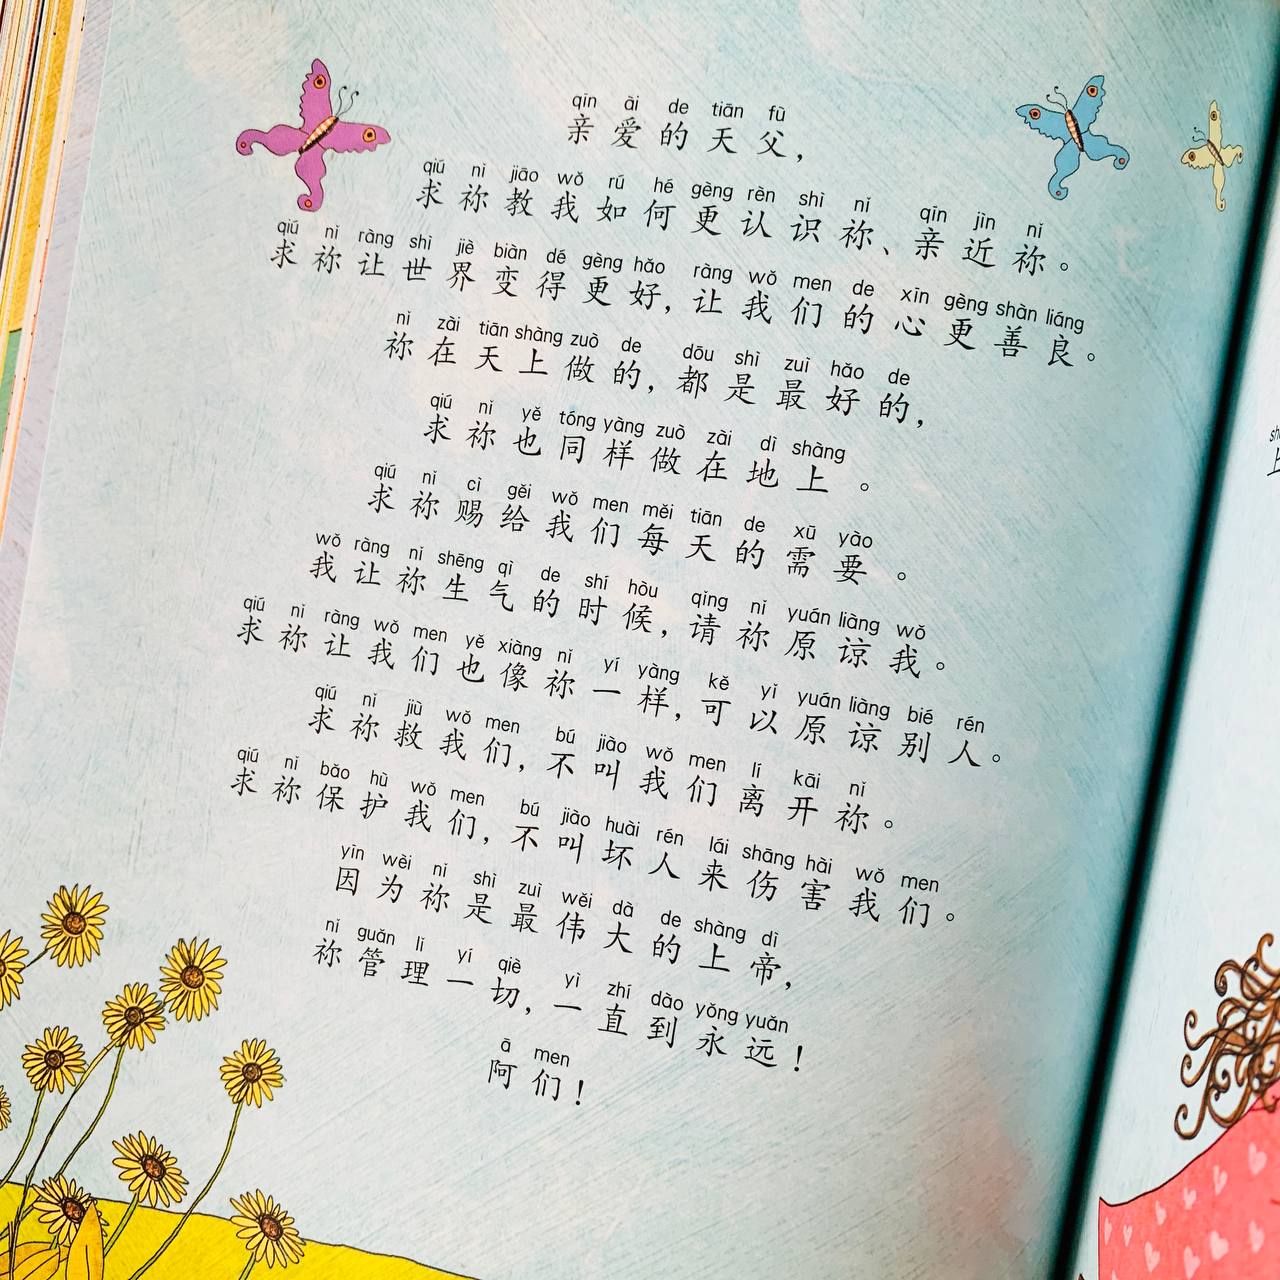 qīn ài de tiān fù
亲爱的天父，
qiú nǐ jiāo wǒ rú hé gèng rèn shì nǐ qīn jìn nǐ
求祢教我如何更认识祢、亲近祢。
qiú nǐ ràng shì jiè biàn dé gèng hǎo ràng wǒ men de xīn gèng shàn liáng
求祢让世界变得更好，让我们的心更善良。
nǐ zài tiān shàng zuò de dōu shì zuì hǎo de
祢在天上做的，都是最好的，
qiú nǐ yě tóng yàng zuò zài dì shàng
求祢也同样做在地上。
qiú nǐ cì gěi wǒ men měi tiān de xū yào
求祢赐给我们每天的需要。
wǒ ràng nǐ shēng qì de shí hòu qǐng nǐ yuán liàng wǒ
我让祢生气的时候，请祢原谅我。
qiú nǐ ràng wǒ men yě xiàng nǐ yí yàng kě yǐ yuán liàng bié rén
求祢让我们也像祢一样，可以原谅别人。
qiú nǐ jiù wǒ men bú jiào wǒ men lí kāi nǐ
求祢救我们，不叫我们离开祢。
qiú nǐ bǎo hù wǒ men bú jiào huài rén lái shāng hài wǒ men
求祢保护我们，不叫坏人来伤害我们。
yīn wèi nǐ shì zuì wěi dà de shàng dì
因为祢是最伟大的上帝，
nǐ guǎn lǐ yí qiè yì zhí dào yǒng yuǎn
祢管理一切，一直到永远！
ā men
阿们！